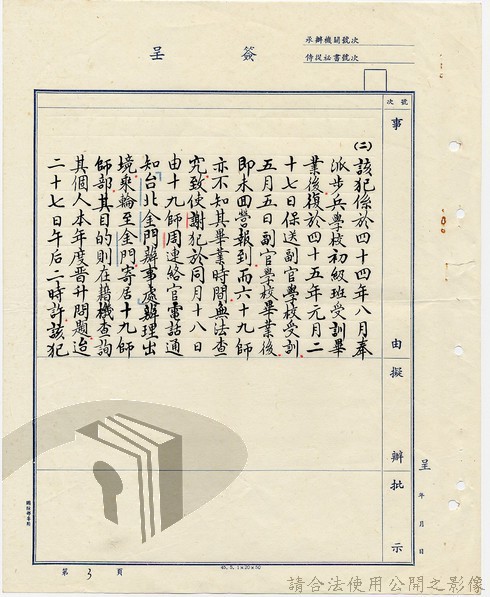 簽呈
承辦機關號次
侍從祕書號次
號次
事由
擬辦
批示
㈡該犯係於四十四年八月奉
派步兵學校初級班受訓畢
業後復於四十五年元月二
十七日保送副官學校受訓
五月五日副官學校畢業後
即未回營報到而六十九師
亦不知其畢業時間無法查
究致使謝犯於同月十八日
由十九師周連絡官電話通
知台北金門辦事處辦理出
境乘輪至金門寄居十九師
師部其目的則在藉機查詢
其個人本年度晉升問題迨
二十七日午后二時許該犯
呈
年月日
第3頁
45.5.1×20×50
請合法使用公開之影像